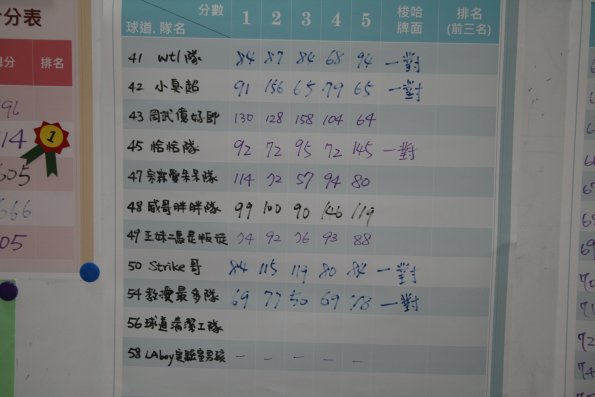 分表
總分 排名
1
605
666
分數 1 2 3 4 5 梭哈牌面 排名(前三名)
球道. 隊名
41 wtl隊 84 87 84 68 94 一對
42 小臭韶 91 156 65 79 65 一對
43 周武俊好帥 130 128 158 104 64
45 恰恰隊 92 72 95 72 145 一對
47 呆呆隊 114 72 57 94 80
48 威哥胖胖隊 99 100 90 146 119
49 正妹 92 93 88
50 Strike哥 84 115 119 80 84 一對
54 教授最多隊 69 77 50 69 一對
56 球道清潔工隊
58 LAboy實驗室男孩 - - - - -